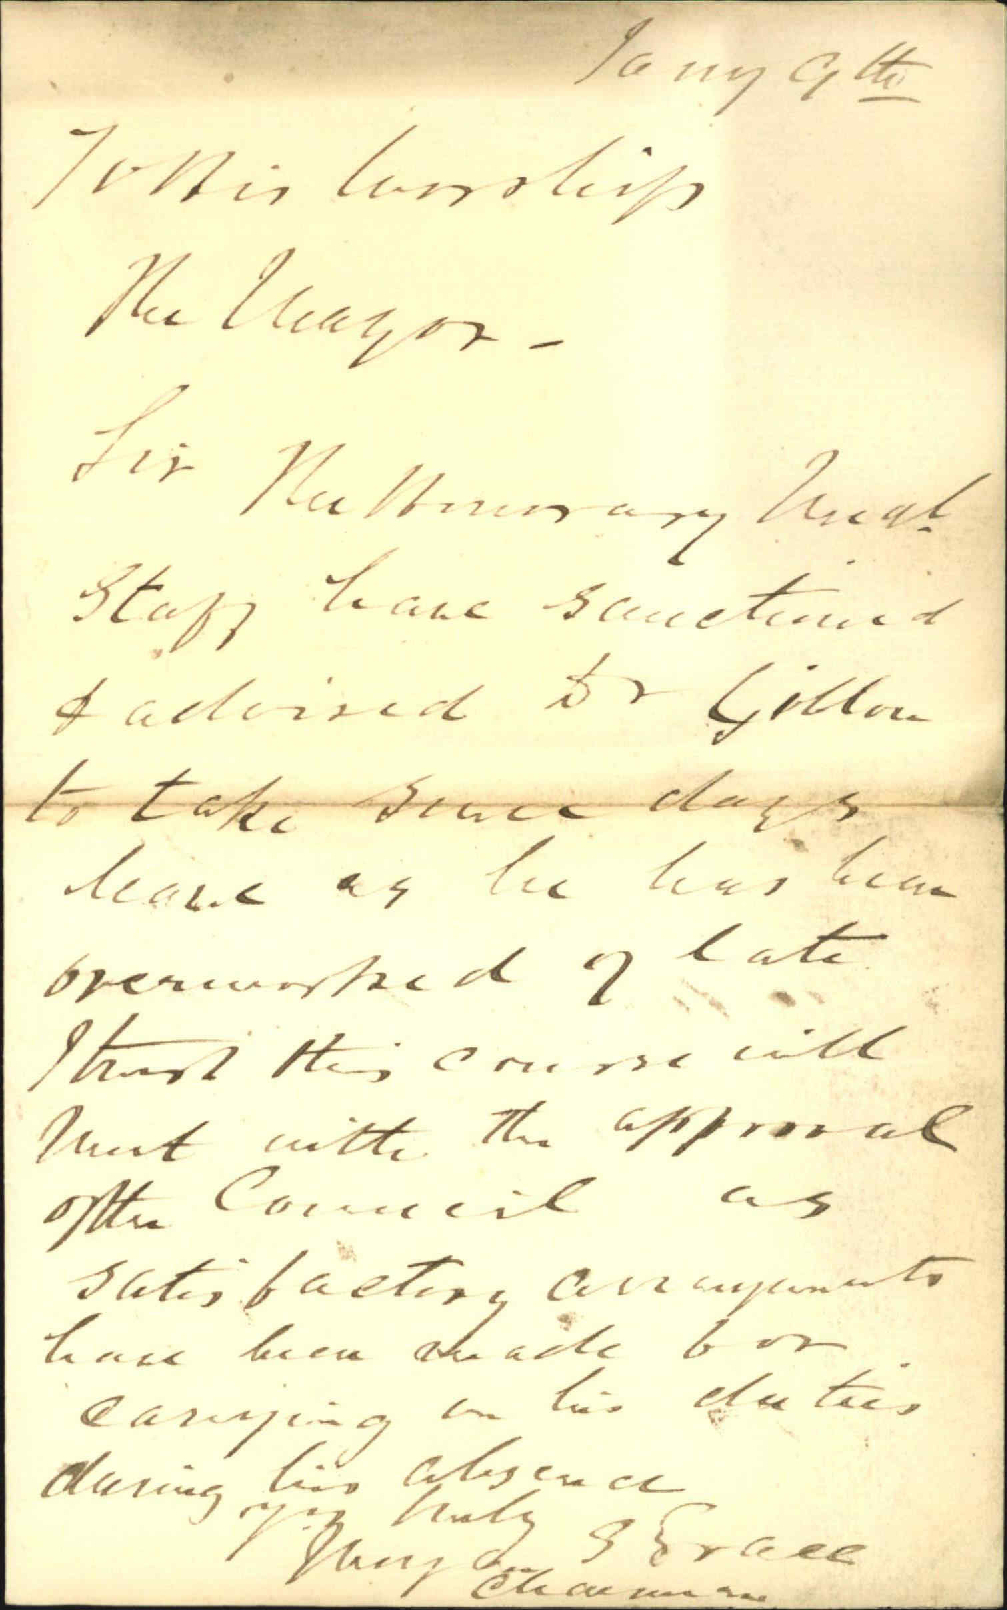 Jany 9th
To His Worship
The Mayor -
Sir
The Honorary Medl
Staff have sanctioned
& advised Dr Gillon
to take some days
leave as he has been
overworked of late
I trust this course will
meet with the approval
of the Council as
satisfactory arrangements
have been made for
carrying on his duties
during his absence
Yrs truly
Morgan S Grace
Chairman